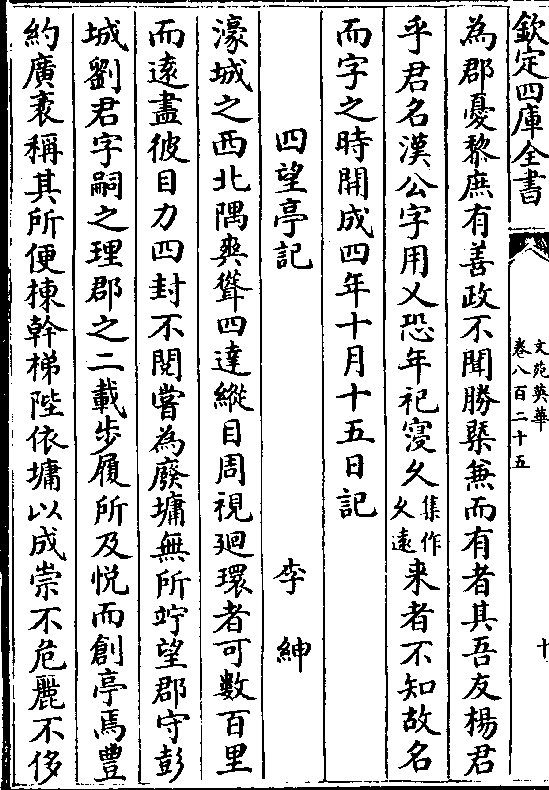 欽定四庫全書
文苑英華
卷八百二十五
十
為郡憂黎庶有善政不聞勝槩兼而有者其吾友楊君
乎君名漢公字用乂恐年祀寖久集作久遠来者不知故名
而字之時開成四年十月十五日記
四望亭記 李紳
濠城之西北隅爽聳四達縱目周視廻環者可數百里
而遠盡彼目力四封不閱嘗為廢墉無所竚望郡守彭
城劉君字嗣之理郡之二載步履所及悅而創亭焉豐
約廣袤稱其所便棟幹梯陛依墉以成崇不危麗不侈